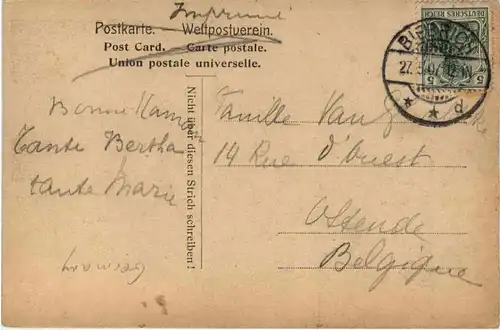 Imprimé
Postkarte. — Weltpostverein.
Post Card. — Carte postale.
Union postale universelle.
DEUTSCHES REICH
5 5
BIEBRICH
27.
Nicht über diesen Strich schreiben!
Bonne
Tante Bertha
tante Marie
Germany
Famille Van
14 Rue d'Ouest
Ostende
Belgique